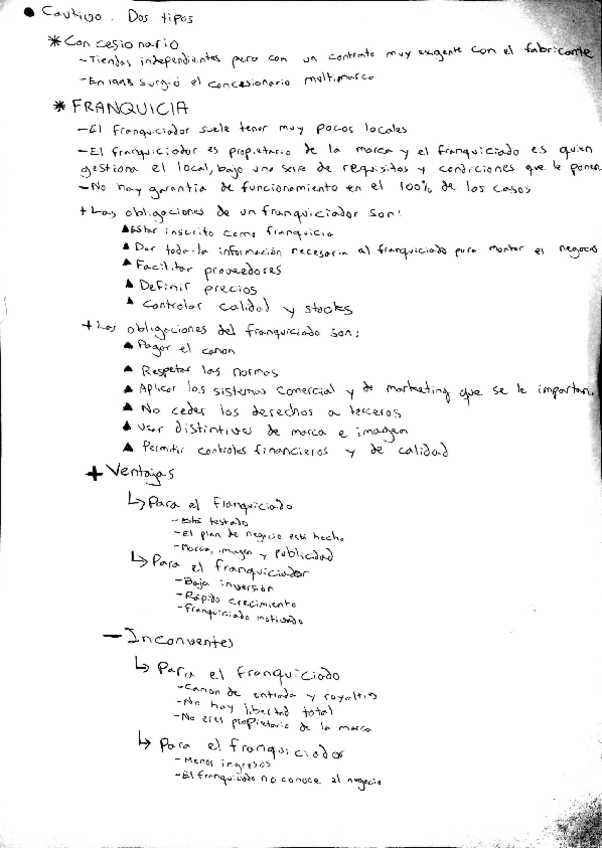 ● Cautivo. Dos tipos
* Concesionario
- Tiendas independientes pero con un contrato muy exigente con el fabricante
- En 1998 surgió el concesionario multimarca
* FRANQUICIA
- El franquiciador suele tener muy pocos locales
- El franquiciador es propietario de la marca y el franquiciado es quien
gestiona el local, bajo una serie de requisitos y condiciones que le ponen
- No hay garantia de funcionamiento en el 100% de los casos
+ Las obligaciones de un franquiciador son:
▲ Estar inscrito como franquicia
▲ Dar toda la información necesaria al franquiciado para montar el negocio
▲ Facilitar proveedores
▲ Definir precios
▲ Controlar calidad y stocks
+ Las obligaciones del franquiciado son:
▲ Pagar el canon
▲ Respetar las normas
▲ Aplicar los sistemas comercial y de marketing que se le importan.
▲ No ceder los derechos a terceros
▲ Usar distintivos de marca e imagen
▲ Permitir controles financieros y de calidad
+ Ventajas
↳ Para el franquiciado
- Está testado
- El plan de negocio está hecho
- Marca, imagen y publicidad
↳ Para el franquiciador
- Baja inversión
- Rápido crecimiento
- Franquiciado motivado
- Inconventes
↳ Para el franquiciado
- Canon de entrada y royalties
- No hay libertad total
- No eres propietario de la marca
↳ Para el franquiciador
- Menos ingresos
- El franquiciado no conoce el negocio